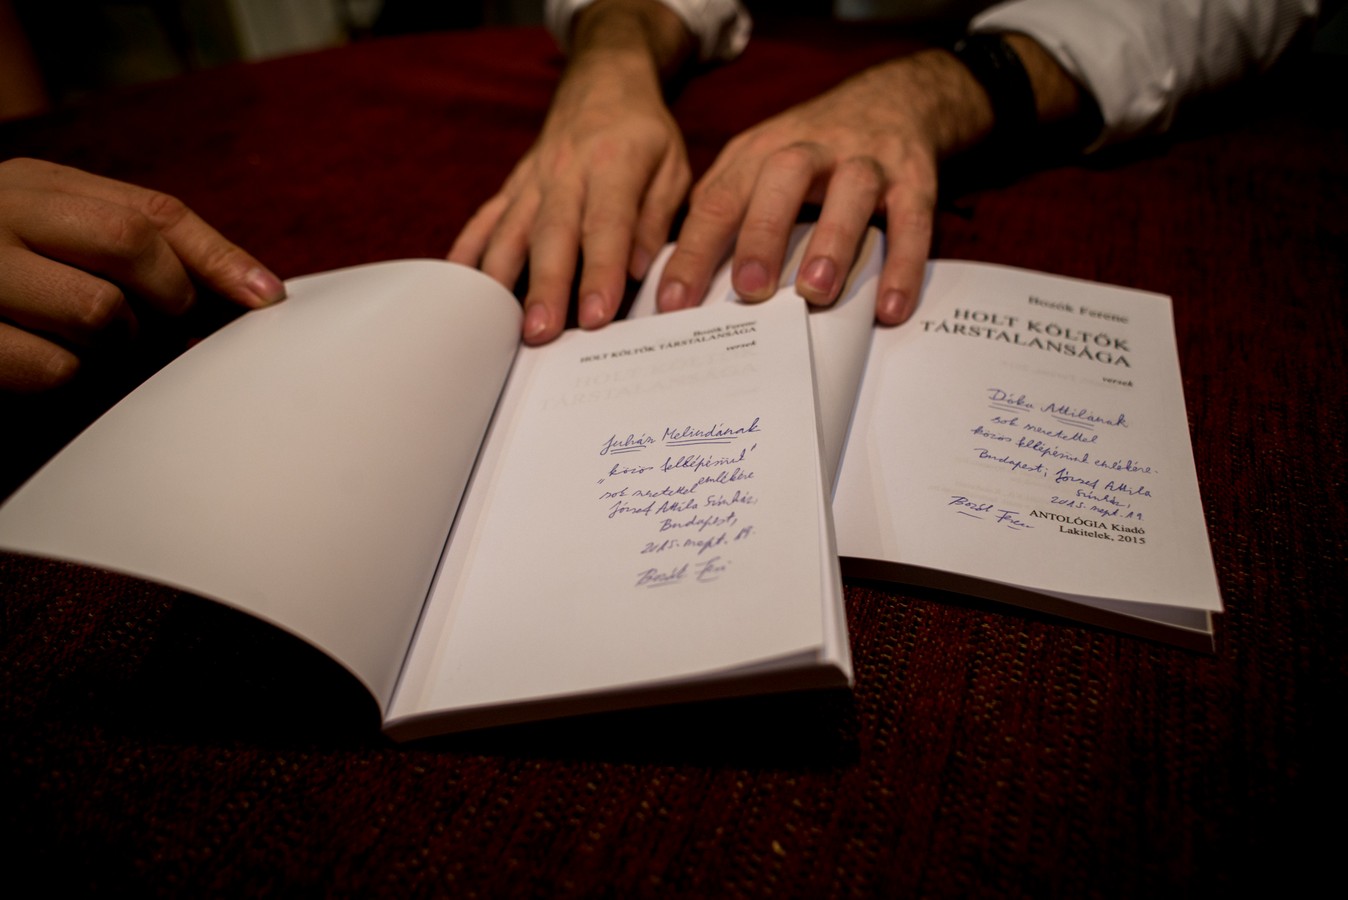 Bozók Ferenc
HOLT KÖLTŐK TÁRSTALANSÁGA
versek
Juhász Melindának
"közös fellépésünk"
emlékére
sok szeretettel
József Attila Színház,
Budapest,
2015. szept. 19.
Bozók Feri
Bozók Ferenc
HOLT KÖLTŐK
TÁRSTALANSÁGA
versek
Dóka Attilának
sok szeretettel
közös fellépésünk emlékére.
Budapest, József Attila
Színház,
2015. szept. 19.
Bozók Ferenc
ANTOLÓGIA Kiadó
Lakitelek, 2015